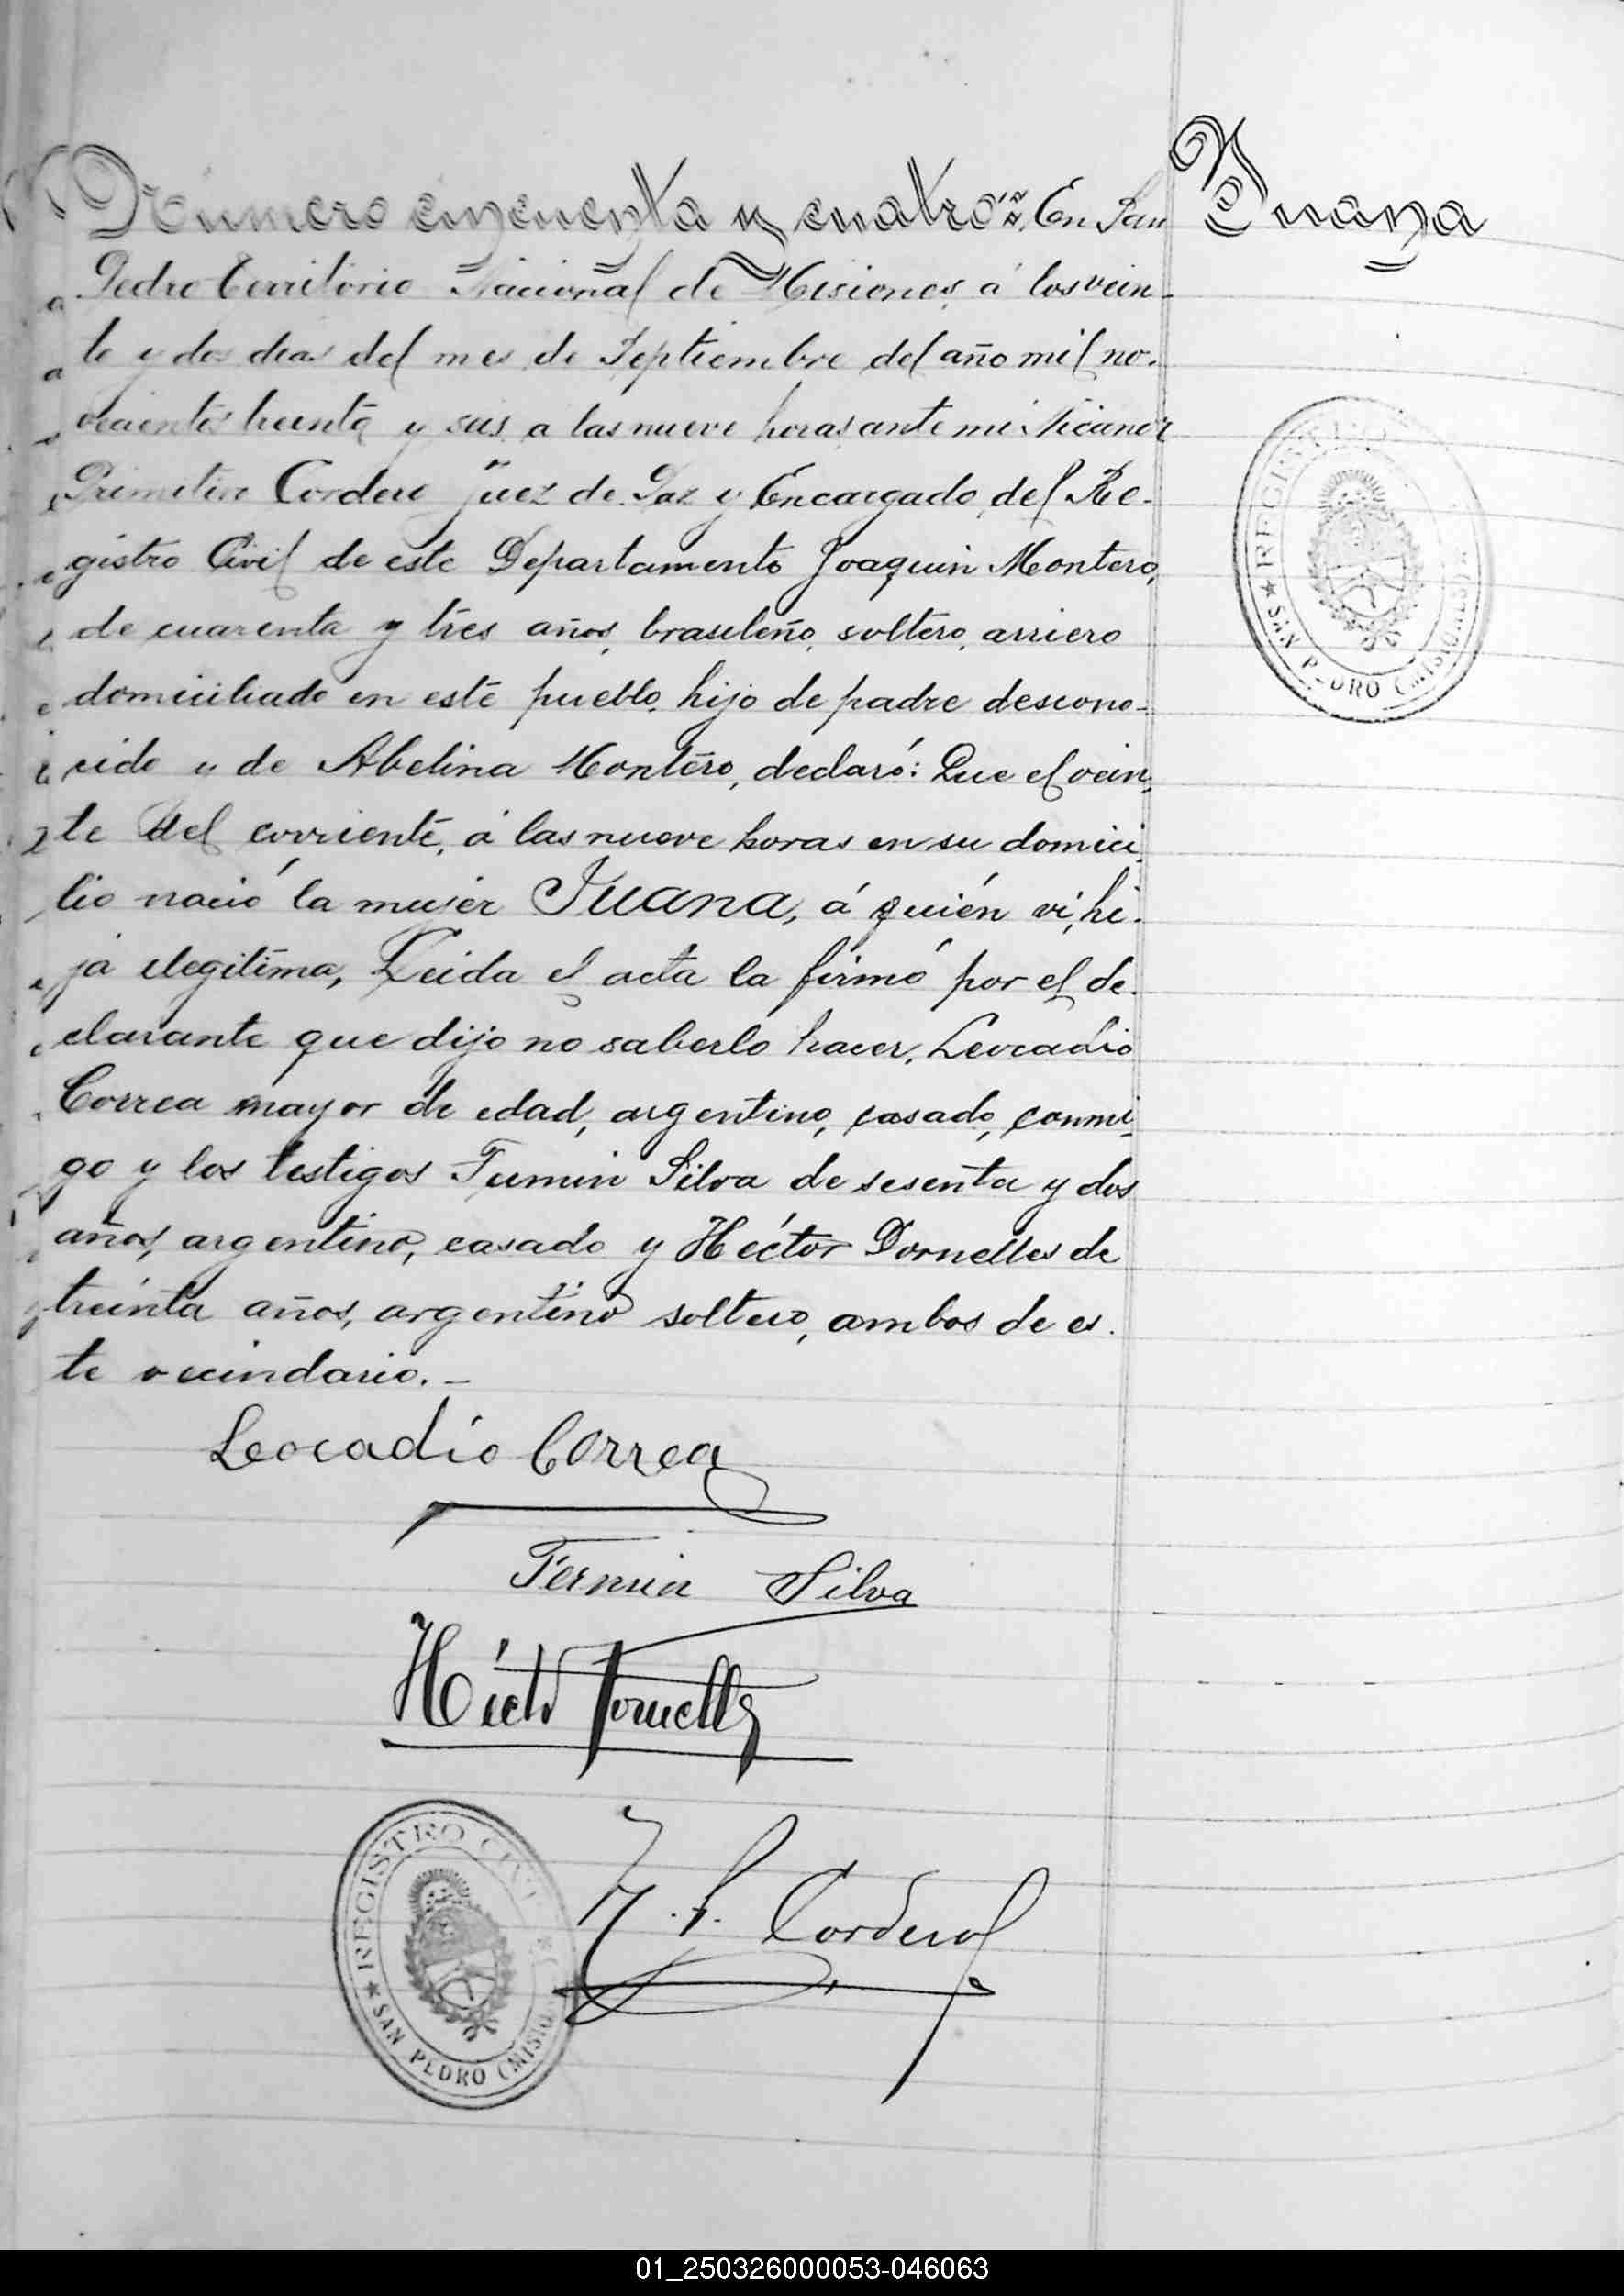 Número cincuenta y cuatro: En San
Juana
Pedro Territorio Nacional de Misiones, á los vein-
te y dos dias del mes de Septiembre del año mil no-
vecientos treinta y seis, a las nueve horas ante mi Nicanor
Primitivo Cordero Juez de Paz y Encargado del Re-
gistro Civil de este Departamento Joaquin Montero,
de cuarenta y tres años, brasileño, soltero, arriero
domiciliado en este pueblo, hijo de padre descono-
cido y de Abelina Montero, declaró: Que el vein-
te del corriente, á las nueve horas en su domici-
lio nació la mujer Juana, á quién vi, hi-
ja ilegitima, Leida el acta la firmó por el de-
clarante que dijo no saberlo hacer, Leocadio
Correa mayor de edad, argentino, casado, conmi-
go y los testigos Fermin Silva de sesenta y dos
años, argentino, casado y Héctor Dornelles de
treinta años, argentino soltero, ambos de es-
te vecindario.-
Leocadio Correa
Fermin Silva
Héctor Dornelles
N. P. Cordero
REGISTRO
SAN PEDRO (MISIONES
REGISTRO CIVIL
SAN PEDRO (MISIO
01_250326000053-046063